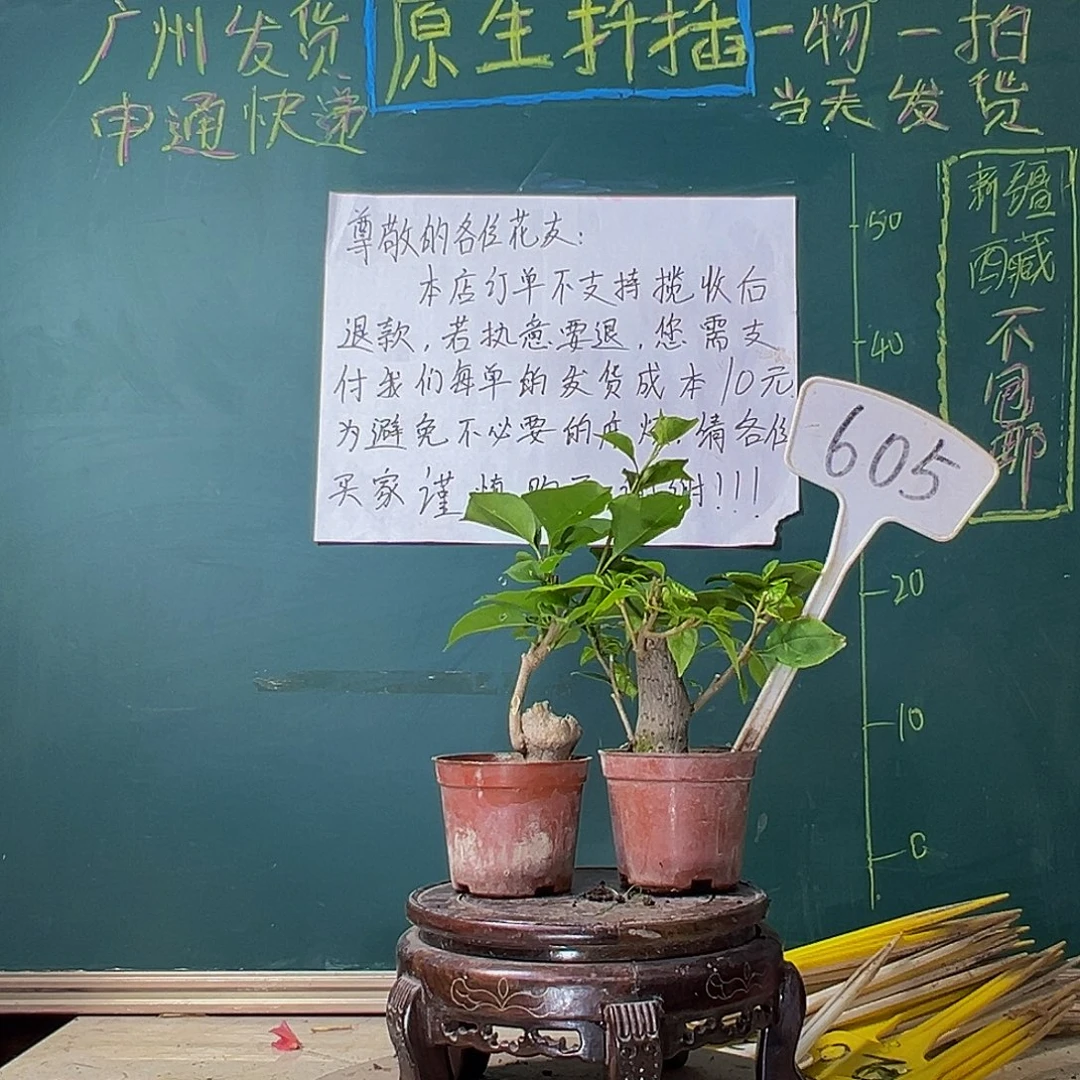 广州发货
申通快递
原生扦插
一物一拍
当天发货
新疆
西藏
不包邮
尊敬的各位花友:
本店订单不支持揽收后
退款,若执意要退,您需支
付我们每单的发货成本10元.
为避免不必要的麻烦,请各位
买家谨慎购买,谢谢!!!
605
50
40
20
10
0